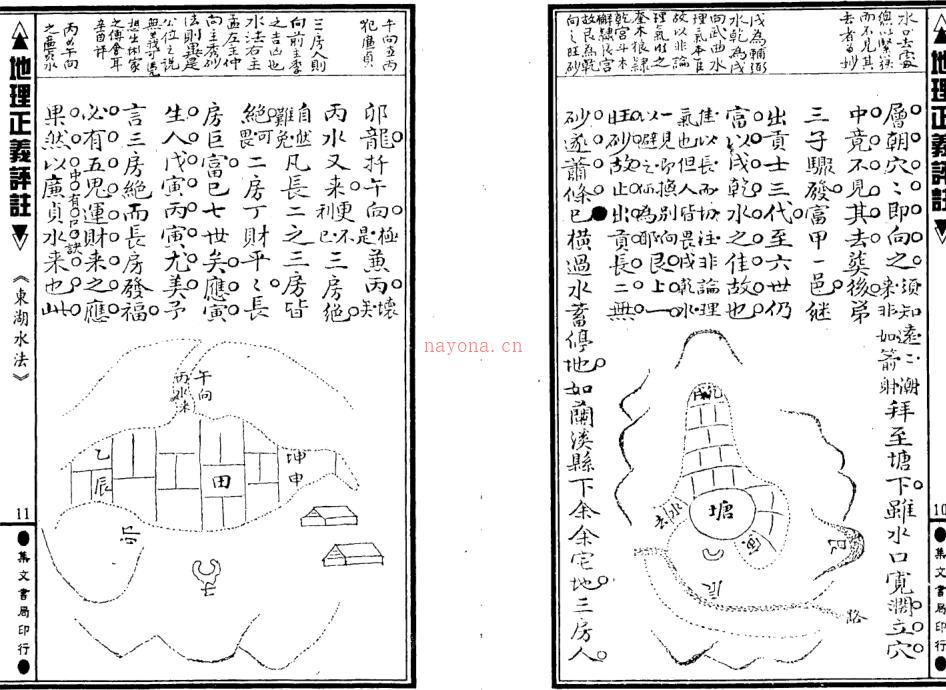 地理正義評註
10
集文書局印行
水口去處
總以緊狹
而不見其
去者為妙
戌為輔弼
水乾為戌
向武曲水
理氣本巨
故以非論
理氣以之
奎木狼隸
乾宮斗木
獬隸艮宮
故艮為乾
向之旺砂
層朝穴〻即向之須知遠〻潮來非如箭射拜至塘下雖水口寬濶立穴
中竟不見其去葬後弟
三子驟發富甲一邑継
出貢士三代至六世仍
富以戌乾水之佳故也
佳以長而切注非論理
氣也但人皆畏戌乾水
一見即換別向艮上一
以避之何為耶
旺砂故止出貢長二無
砂遂蕭條已●橫過水蓄停地如蘭溪縣下余余宅地三房人
塘
田
艮
路
地理正義評註
《東湖水法》
11
集文書局印行
午向丙
犯廉貞
三房人則
向前主季
之吉凶也
水法右主
孟左主仲
向主季砂
法則還是
公位之說
無義可覓
想是術家
之傅會耳
辛酉評
丙為午向
之廉貞水
卯龍扦午向是極兼丙壞矣
丙水又來更不利已三房絕
自然難免凡長二之三房皆
絕可畏二房丁財平〻長
房巨富已七世矣應寅
生人戊寅丙寅尤美予
言三房絕而長房發福
必有五鬼運財來之應
果然以廉貞水來也此中有口訣
午向
丙水來
乙辰
田
坤申